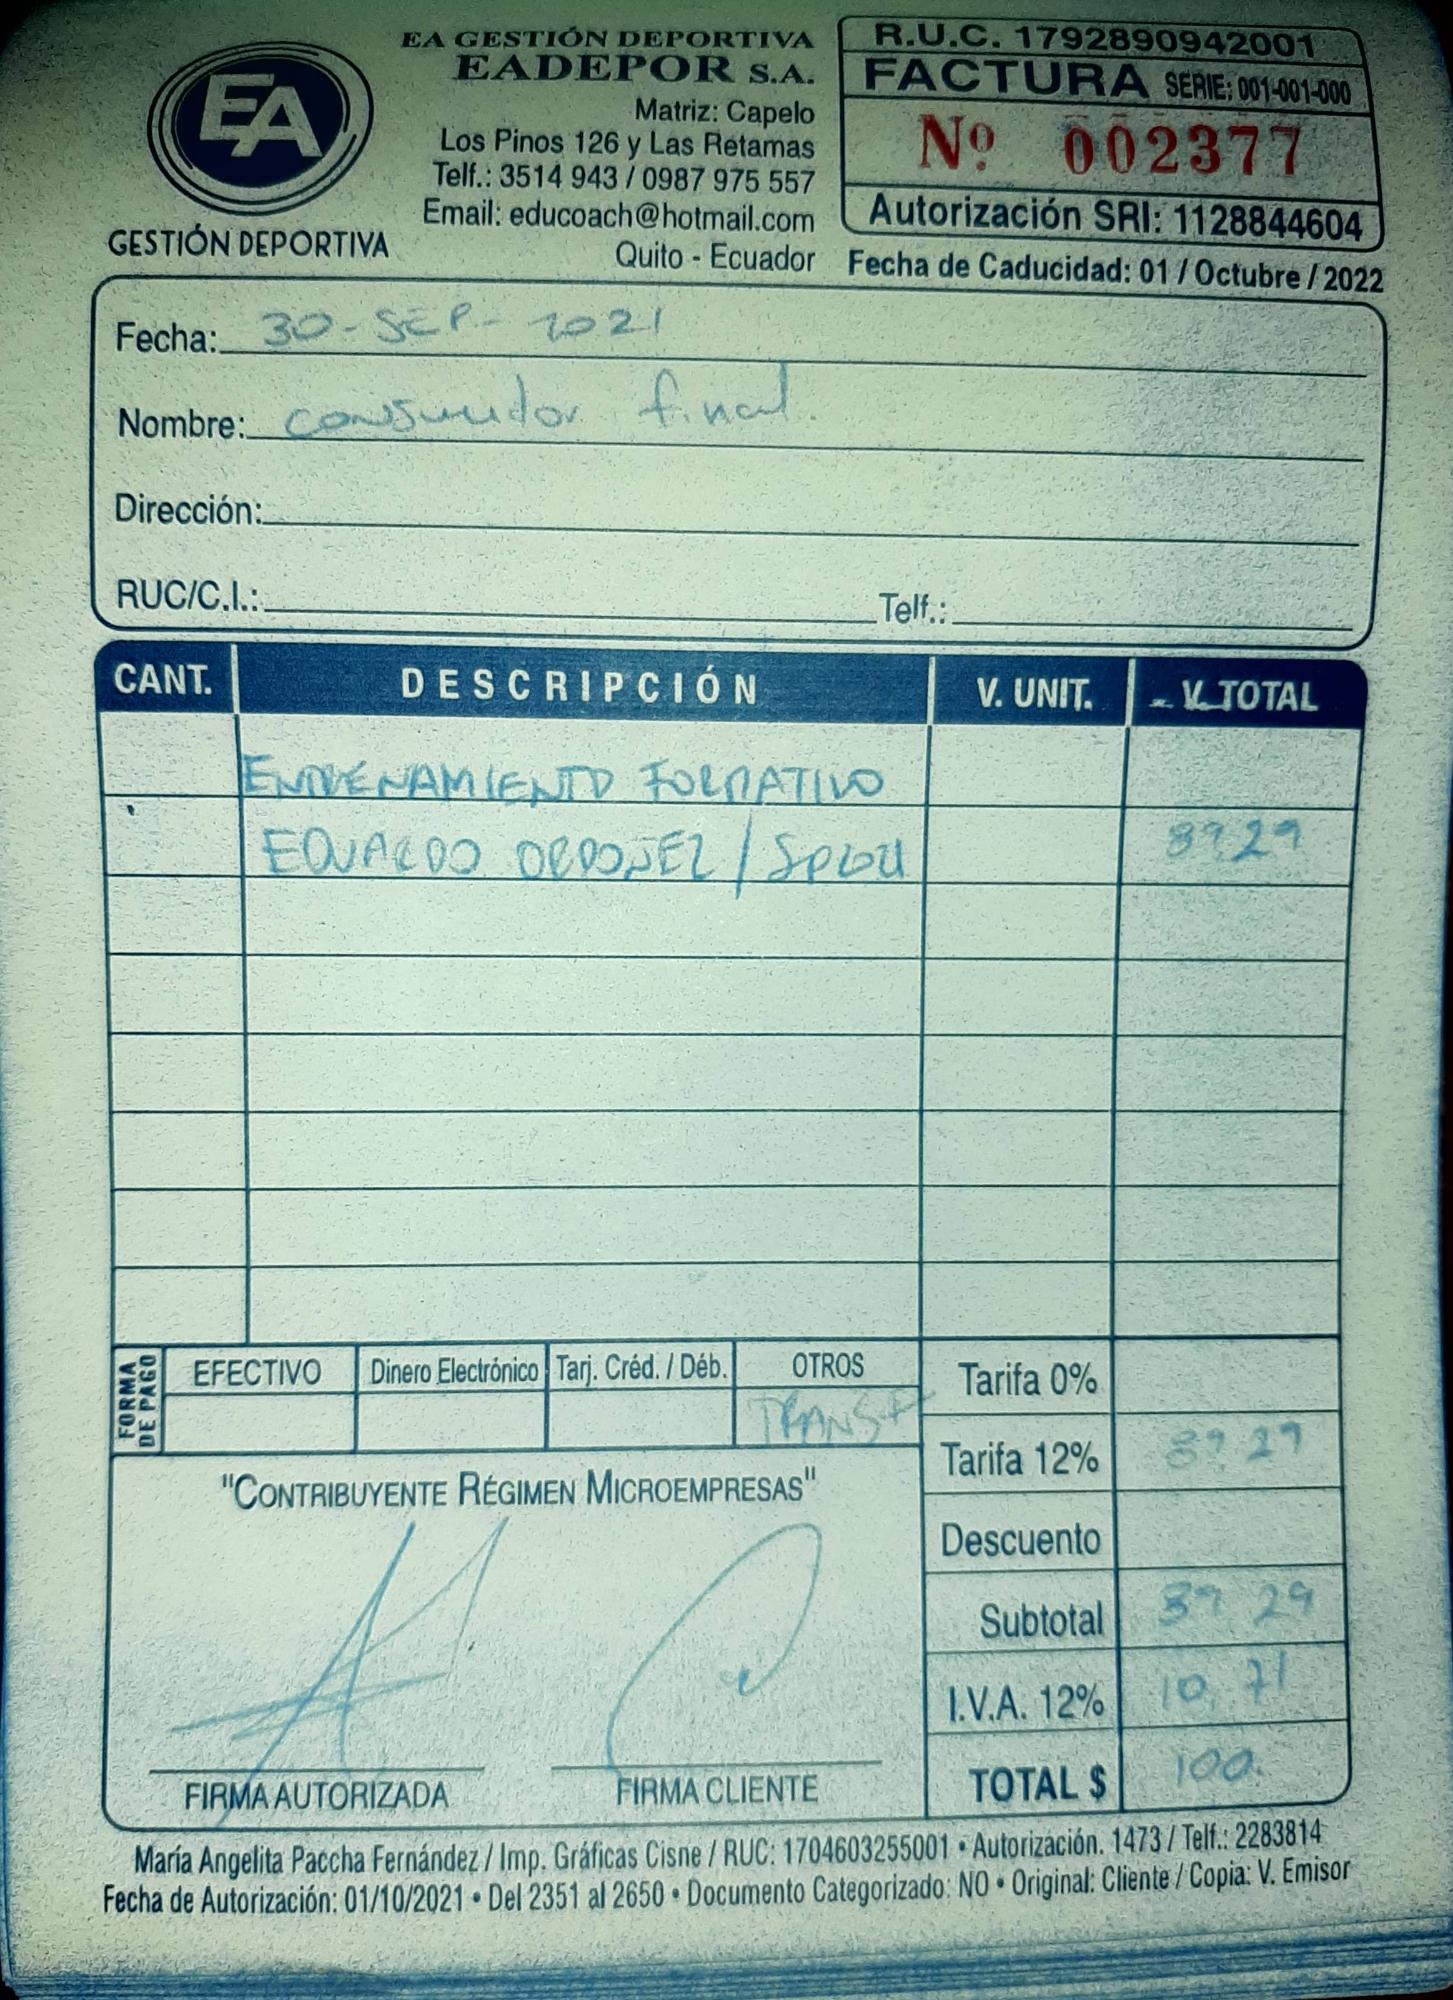 EA
GESTIÓN DEPORTIVA
EA GESTIÓN DEPORTIVA
EADEPOR S.A.
Matriz: Capelo
Los Pinos 126 y Las Retamas
Telf.: 3514 943 / 0987 975 557
Email: educoach@hotmail.com
Quito - Ecuador
R.U.C. 1792890942001
FACTURA SERIE: 001-001-000
Nº 002377
Autorización SRI: 1128844604
Fecha de Caducidad: 01 / Octubre / 2022
Fecha: 30-SEP-2021
Nombre: consumidor final.
Dirección:
RUC/C.I.: Telf.:
CANT. DESCRIPCIÓN V. UNIT. V. TOTAL
ENTRENAMIENTO FORMATIVO
EDUARDO ORDOÑEZ / 89.29
FORMA DE PAGO
EFECTIVO Dinero Electrónico Tarj. Créd. / Déb. OTROS
TRANSF
Tarifa 0%
Tarifa 12% 89.29
Descuento
Subtotal 89.29
I.V.A. 12% 10.71
TOTAL $ 100.
"CONTRIBUYENTE RÉGIMEN MICROEMPRESAS"
FIRMA AUTORIZADA FIRMA CLIENTE
María Angelita Paccha Fernández / Imp. Gráficas Cisne / RUC: 1704603255001 • Autorización. 1473 / Telf.: 2283814
Fecha de Autorización: 01/10/2021 • Del 2351 al 2650 • Documento Categorizado: NO • Original: Cliente / Copia: V. Emisor